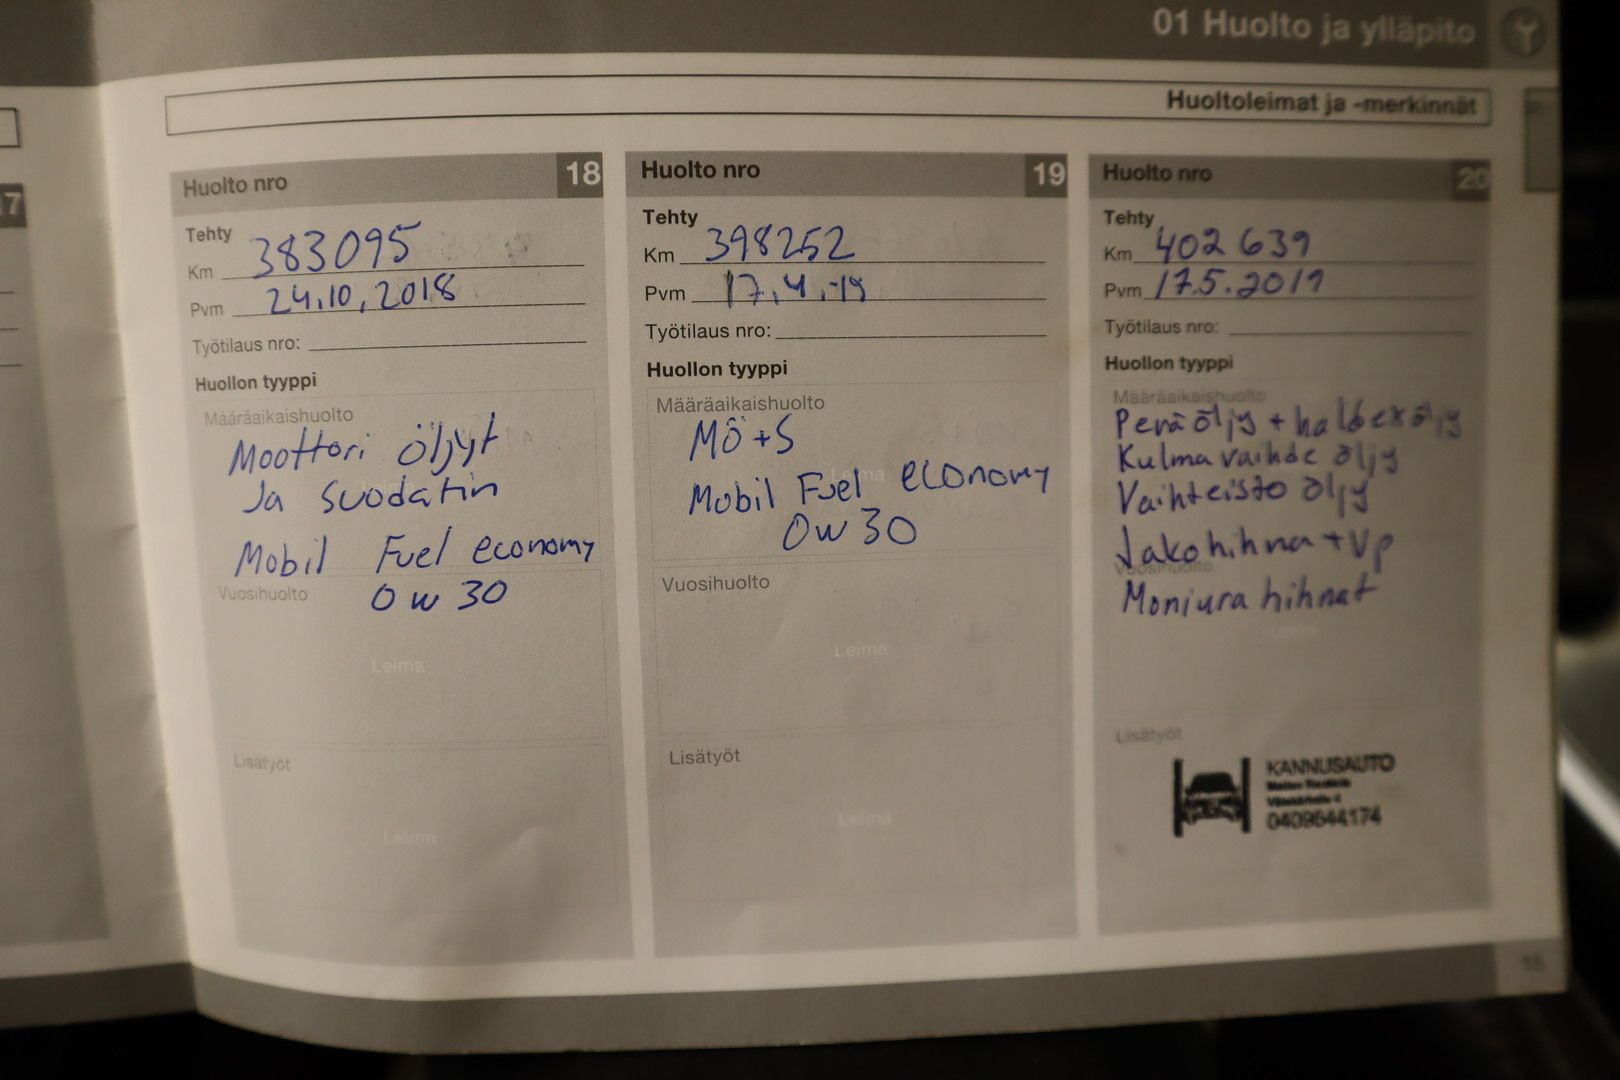 01 Huolto ja ylläpito
Huoltoleimat ja -merkinnät
17
Huolto nro 18
Tehty
Km 383095
Pvm 24.10.2018
Työtilaus nro:
Huollon tyyppi
Määräaikaishuolto
Moottori öljyt
Ja suodatin
Leima
Mobil Fuel economy
Vuosihuolto 0w30
Leima
Lisätyöt
Leima
Huolto nro 19
Tehty
Km 398252
Pvm 17.4.-19
Työtilaus nro:
Huollon tyyppi
Määräaikaishuolto
MÖ+S
Leima
Mobil Fuel economy
0w30
Vuosihuolto
Leima
Lisätyöt
Leima
Huolto nro 20
Tehty
Km 402639
Pvm 17.5.2019
Työtilaus nro:
Huollon tyyppi
Määräaikaishuolto
Perä öljy + haldex öljy
Kulmavaihde öljy
Vaihteisto öljy
Jakohihna + vp
Vuosihuolto
Moniura hihnat
Leima
Lisätyöt
KANNUSAUTO
0409644174
15